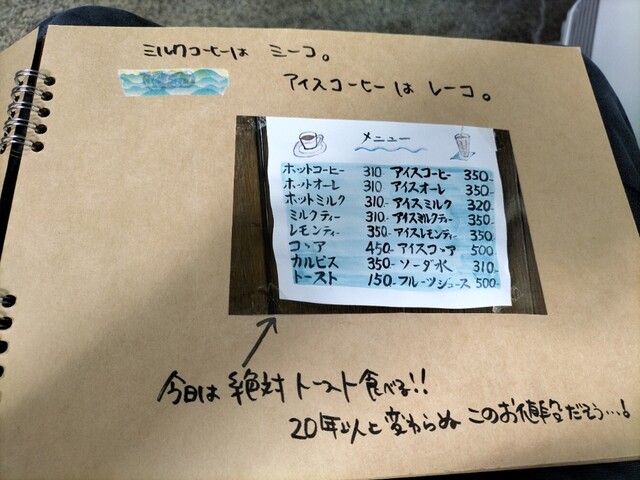 ミルクコーヒーは ミーコ。
アイスコーヒーは レーコ。
メニュー
ホットコーヒー 310 アイスコーヒー 350-
ホットオーレ 310 アイスオーレ 350-
ホットミルク 310- アイスミルク 320
ミルクティー 310- アイスミルクティー 350-
レモンティー 350- アイスレモンティー 350-
ココア 450- アイスココア 500
カルピス 350- ソーダ水 310-
トースト 150- フルーツジュース 500-
今日は 絶対 トースト食べる!!
20年以上 変わらぬ このお値段だそう…!